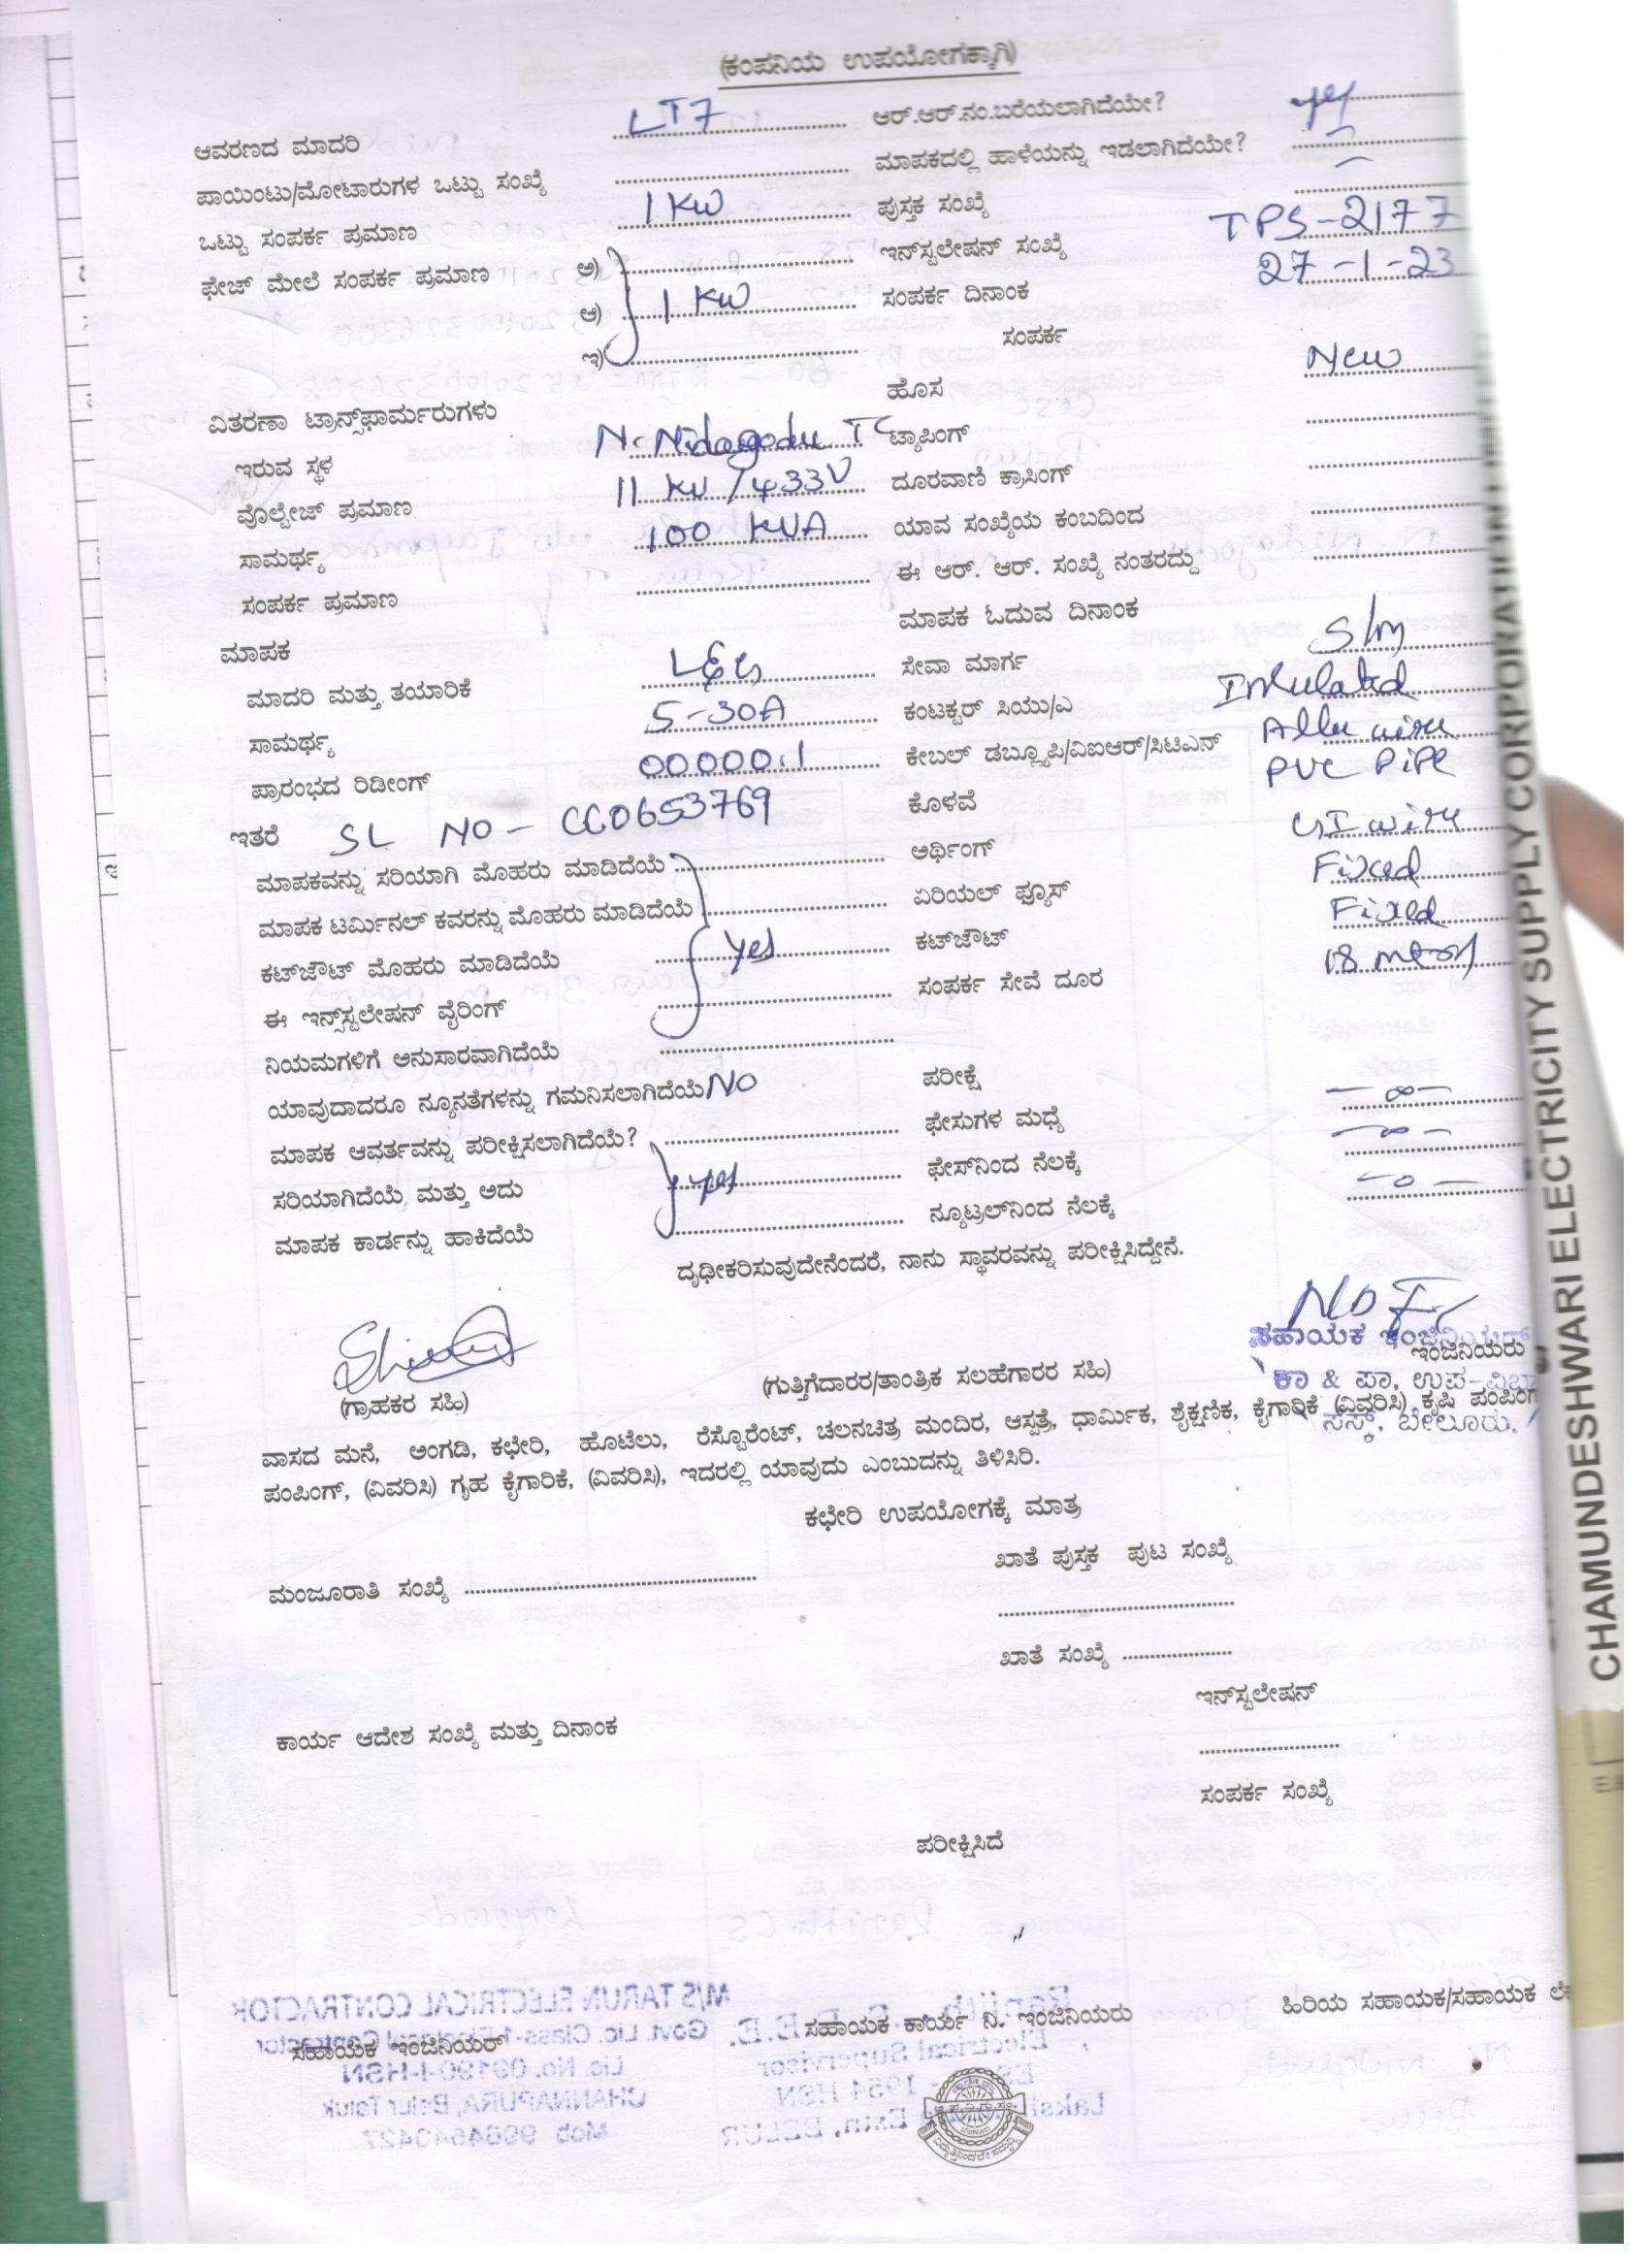 (ಕಂಪನಿಯ ಉಪಯೋಗಕ್ಕಾಗಿ)
ಆವರಣದ ಮಾದರಿ LT7 ಆರ್.ಆರ್.ನಂ.ಬರೆಯಲಾಗಿದೆಯೇ? yes
ಪಾಯಿಂಟು/ಮೋಟಾರುಗಳ ಒಟ್ಟು ಸಂಖ್ಯೆ ಮಾಪಕದಲ್ಲಿ ಹಾಳೆಯನ್ನು ಇಡಲಾಗಿದೆಯೇ?
ಒಟ್ಟು ಸಂಪರ್ಕ ಪ್ರಮಾಣ 1 KW ಪುಸ್ತಕ ಸಂಖ್ಯೆ
ಫೇಜ್ ಮೇಲೆ ಸಂಪರ್ಕ ಪ್ರಮಾಣ ಅ) ಇನ್‌ಸ್ಟಲೇಷನ್ ಸಂಖ್ಯೆ TPS-2177
ಆ) 1 KW ಸಂಪರ್ಕ ದಿನಾಂಕ 27-1-23
ಇ) ಸಂಪರ್ಕ
ಹೊಸ New
ವಿತರಣಾ ಟ್ರಾನ್ಸ್‌ಫಾರ್ಮರುಗಳು
ಇರುವ ಸ್ಥಳ N. Nidagodu TC ಟ್ಯಾಪಿಂಗ್
ವೊಲ್ಟೇಜ್ ಪ್ರಮಾಣ 11 KV / 433V ದೂರವಾಣಿ ಕ್ರಾಸಿಂಗ್
ಸಾಮರ್ಥ್ಯ 100 KVA ಯಾವ ಸಂಖ್ಯೆಯ ಕಂಬದಿಂದ
ಸಂಪರ್ಕ ಪ್ರಮಾಣ ಈ ಆರ್. ಆರ್. ಸಂಖ್ಯೆ ನಂತರದ್ದು
ಮಾಪಕ ಮಾಪಕ ಓದುವ ದಿನಾಂಕ
ಮಾದರಿ ಮತ್ತು ತಯಾರಿಕೆ L&G ಸೇವಾ ಮಾರ್ಗ
ಸಾಮರ್ಥ್ಯ 5-30A ಕಂಟಕ್ಟರ್ ಸಿಯು/ಎ Insulated
ಪ್ರಾರಂಭದ ರಿಡೀಂಗ್ 00000.1 ಕೇಬಲ್ ಡಬ್ಲ್ಯೂಪಿ/ವಿಐಆರ್/ಸಿಟಿಎನ್ Allu wire
ಇತರೆ SL NO - CC0653769 ಕೊಳವೆ PVC Pipe
ಮಾಪಕವನ್ನು ಸರಿಯಾಗಿ ಮೊಹರು ಮಾಡಿದೆಯೆ ಅರ್ಥಿಂಗ್ GI wire
ಮಾಪಕ ಟರ್ಮಿನಲ್ ಕವರನ್ನು ಮೊಹರು ಮಾಡಿದೆಯೆ ಏರಿಯಲ್ ಫ್ಯೂಸ್ Fixed
ಕಟ್‌ಔಟ್ ಮೊಹರು ಮಾಡಿದೆಯೆ yes ಕಟ್‌ಔಟ್ Fixed
ಈ ಇನ್ಸ್‌ಸ್ಟಲೇಷನ್ ವೈರಿಂಗ್ ಸಂಪರ್ಕ ಸೇವೆ ದೂರ 08
ನಿಯಮಗಳಿಗೆ ಅನುಸಾರವಾಗಿದೆಯೆ
ಯಾವುದಾದರೂ ನ್ಯೂನತೆಗಳನ್ನು ಗಮನಿಸಲಾಗಿದೆಯೆ NO ಪರೀಕ್ಷೆ
ಮಾಪಕ ಆವರ್ತವನ್ನು ಪರೀಕ್ಷಿಸಲಾಗಿದೆಯೆ? ಫೇಸುಗಳ ಮಧ್ಯೆ
ಸರಿಯಾಗಿದೆಯೆ ಮತ್ತು ಅದು yes ಫೇಸ್‌ನಿಂದ ನೆಲಕ್ಕೆ
ಮಾಪಕ ಕಾರ್ಡನ್ನು ಹಾಕಿದೆಯೆ ನ್ಯೂಟ್ರಲ್‌ನಿಂದ ನೆಲಕ್ಕೆ
ದೃಢೀಕರಿಸುವುದೇನೆಂದರೆ, ನಾನು ಸ್ಥಾವರವನ್ನು ಪರೀಕ್ಷಿಸಿದ್ದೇನೆ.
ಸಹಾಯಕ ಇಂಜಿನಿಯರ್
ಇಂಜಿನಿಯರು
(ಗ್ರಾಹಕರ ಸಹಿ) (ಗುತ್ತಿಗೆದಾರರ/ತಾಂತ್ರಿಕ ಸಲಹೆಗಾರರ ಸಹಿ) ಕಾ & ಪಾ, ಉಪ-
ವಾಸದ ಮನೆ, ಅಂಗಡಿ, ಕಛೇರಿ, ಹೊಟೆಲು, ರೆಸ್ಟೊರೆಂಟ್, ಚಲನಚಿತ್ರ ಮಂದಿರ, ಆಸ್ಪತ್ರೆ, ಧಾರ್ಮಿಕ, ಶೈಕ್ಷಣಿಕ, ಕೈಗಾರಿಕೆ (ವಿವರಿಸಿ) ಕೃಷಿ ಪಂಪಿಂಗ್
ಬೇಲೂರು.
ಪಂಪಿಂಗ್, (ವಿವರಿಸಿ) ಗೃಹ ಕೈಗಾರಿಕೆ, (ವಿವರಿಸಿ), ಇದರಲ್ಲಿ ಯಾವುದು ಎಂಬುದನ್ನು ತಿಳಿಸಿರಿ.
ಕಛೇರಿ ಉಪಯೋಗಕ್ಕೆ ಮಾತ್ರ
ಖಾತೆ ಪುಸ್ತಕ ಪುಟ ಸಂಖ್ಯೆ
ಮಂಜೂರಾತಿ ಸಂಖ್ಯೆ
ಖಾತೆ ಸಂಖ್ಯೆ
ಇನ್‌ಸ್ಟಲೇಷನ್
ಕಾರ್ಯ ಆದೇಶ ಸಂಖ್ಯೆ ಮತ್ತು ದಿನಾಂಕ
ಸಂಪರ್ಕ ಸಂಖ್ಯೆ
ಪರೀಕ್ಷಿಸಿದೆ
ಸಹಾಯಕ ಇಂಜಿನಿಯರ್ ಸಹಾಯಕ ಕಾರ್ಯ ನಿ. ಇಂಜಿನಿಯರು ಹಿರಿಯ ಸಹಾಯಕ/ಸಹಾಯಕ
CHAMUNDESHWARI ELECTRICITY SUPPLY CORPORATION